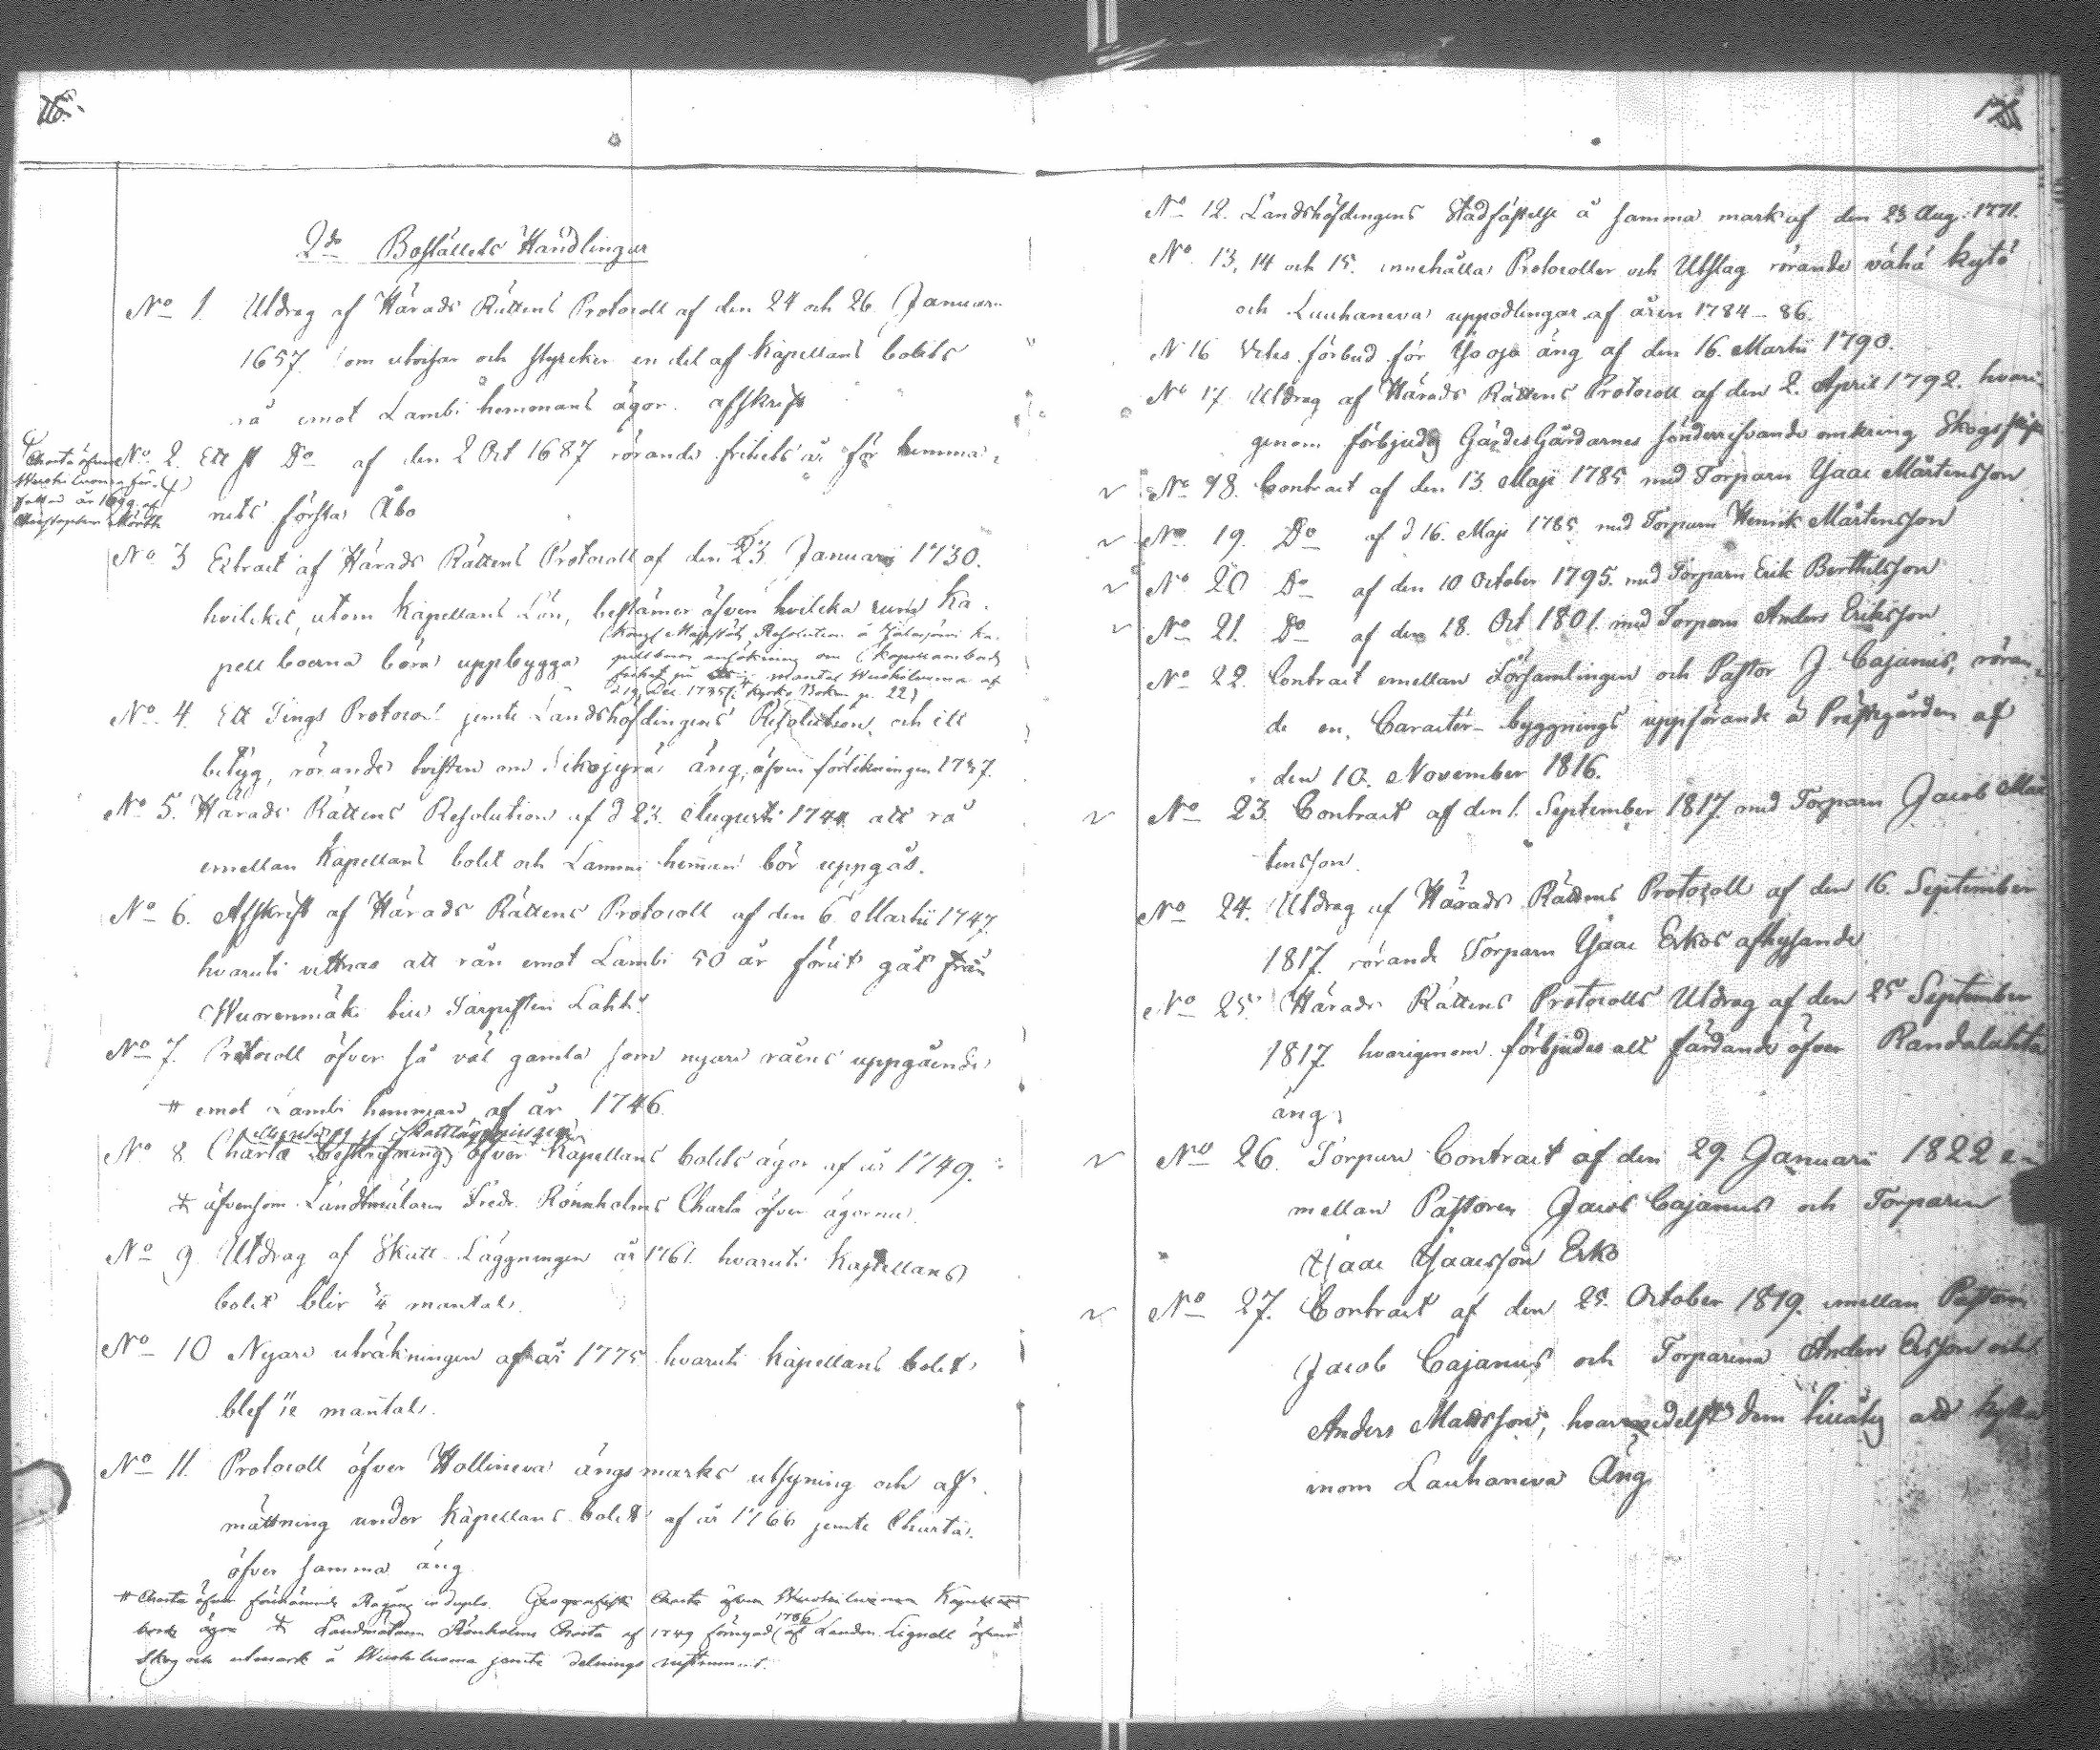 2do Boställets Handlingar
No 1. Utdrag af Härads Rättens Protocoll af den 24 och 26 Januari
1657 som utvisar och styrcker en del af Kapellans bolets
rå emot Lambi hemmans ägor. afskrift
Charta öfver
fattad år 1699 af
Christopher
No 2. Ett st Do af den 2 Oct 1687 rörande frihets år för hemma-
nets första Åbo
No 3 Extract af Härads Rättens Protocoll af den 23 Januarii 1730.
hvilcket, utom Kapellans Lön, bestämer äfven hvilcka rum Ka-
pell boerna böra uppbygga
Kongl Majestäts Resolution å Ka-
pellboers ansökning om Kapellansbol
frihet för mantal af
d 19 Dec. 1735 (i Kyrko Boken p. 22)
No 4. Ett Tings Protocol jemte Landshöfdingens Resolution, och ett
betyg, rörande tvisten om äng, äfven förlikningen 1737.
No 5. Härads Rättens Resolution af d 23. Augusti 1744 att rå
emellan Kapellans bolet och Lammi hemman bör uppgås.
No 6. Afskrift af Härads Rättens Protocoll af den 6 Martii 1747.
hvaruti vittnas att rån emot Lambi 50 år förut gåt från
Wuorenmäki
No 7. Protocoll öfver så väl gamla som nyare råens uppgående
# emot Lambi hemman af år 1746.
No 8 Charta Beskrifning öfver Kapellans bolets ägor af år 1749.
# äfvensom Landtmätaren Fredr. Rönnholms Charta öfver ägorna.
No 9 Utdrag af Skatt Läggningen år 1761. hvaruti Kapellans
bolet blir mantal.
No 10 Nyare uträkningen af år 1775 hvaruti Kapellans bolet
blef mantal.
No 11. Protocoll öfver Hollineva ängsmarks utsyning och af-
mättning under Kapellans bolet af år 1766 jemte Charta
öfver samma äng
# Charta öfver Rågång in duplo. Geografisk Charta öfver Kapellans
bols ägor # Landmätaren Rönholms Charta af 1749 förnyad 1786 af Landm. Lignell öfver
Skog och utmark å jemte delnings instrument.
No 12. Landshöfdingens Stadfästelse å samma mark af den 23 Aug. 1771.
No 13, 14 och 15. innehålla Protocoller och Utslag rörande vähä kytö
och Lauhaneva uppodlingar af åren 1784-86.
N 16 förbud för äng af den 16. Martii 1790.
No 17 Utdrag af Härads Rättens Protocoll af den 2. April 1792. hvari-
genom förbjuds GärdesGårdarnes sönderrifvande omkring
No 18. Contract af den 13. Maji 1785 med Torparn Isaac Mårtensson
No 19. Do af d 16. Maji 1785 med Torparn Henrik Mårtensson
No 20 Do af den 10 October 1795. med Torparn Erik Berthilsson
No 21. Do af den 28. Oct 1801. med Torparn Anders Eriksson
No 22. Contract emellan Församlingen och Pastor J. Cajanus, röran-
de en Caracter-byggnings uppförande å Prästegården af
den 10. November 1816.
No 23. Contract af den 1. September 1817. med Torparn Jacob Mår
tensson
No 24. Utdrag af Härads Rättens Protocoll af den 16. September
1817. rörande Torparn Isaac Erkos afhysande
No 25. Härads Rättens Protocolls Utdrag af den 25 September
1817. hvarigenom förbjudes allt färdande öfver Randaluhta
äng.
No 26. Torpare Contract af den 29. Januarii 1822 e-
mellan Pastoren Jacob Cajanus och Torparen
Isaac Isaacsson Erko
No 27. Contract af den 25. October 1819. emellan Pastorn
Jacob Cajanus och Torparena Anders Ersson och
Anders Mattsson, hvarmedelst dem tillåts att kytta
inom Lauhaneva Äng